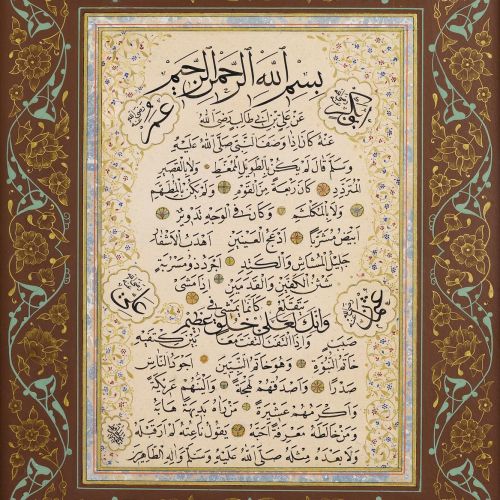 بسم الله الرحمن الرحيم
عن علي بن أبي طالب رضي الله
عنه كان إذا وصف النبي صلى الله عليه
وسلم قال لم يكن بالطويل الممغط ولا القصير
المتردد كان ربعة من القوم ولم يكن بالمطهم
ولا بالمكلثم وكان في الوجه تدوير
أبيض مشربا أدعج العينين أهدب الأشفار
جليل المشاش والكتد أجرد ذو مسربة
شثن الكفين والقدمين إذا مشى
يتقلع كأنما يمشي في
وإنك لعلى خلق عظيم
صبب وإذا التفت التفت معا بين كتفيه
خاتم النبوة وهو خاتم النبيين أجود الناس
صدرا وأصدقهم لهجة وألينهم عريكة
وأكرمهم عشيرة من رآه بديهة هابه
ومن خالطه معرفة أحبه يقول ناعته لم أر قبله
ولا بعده مثله صلى الله عليه وسلم وآله الطاهر
عمر
عثمان